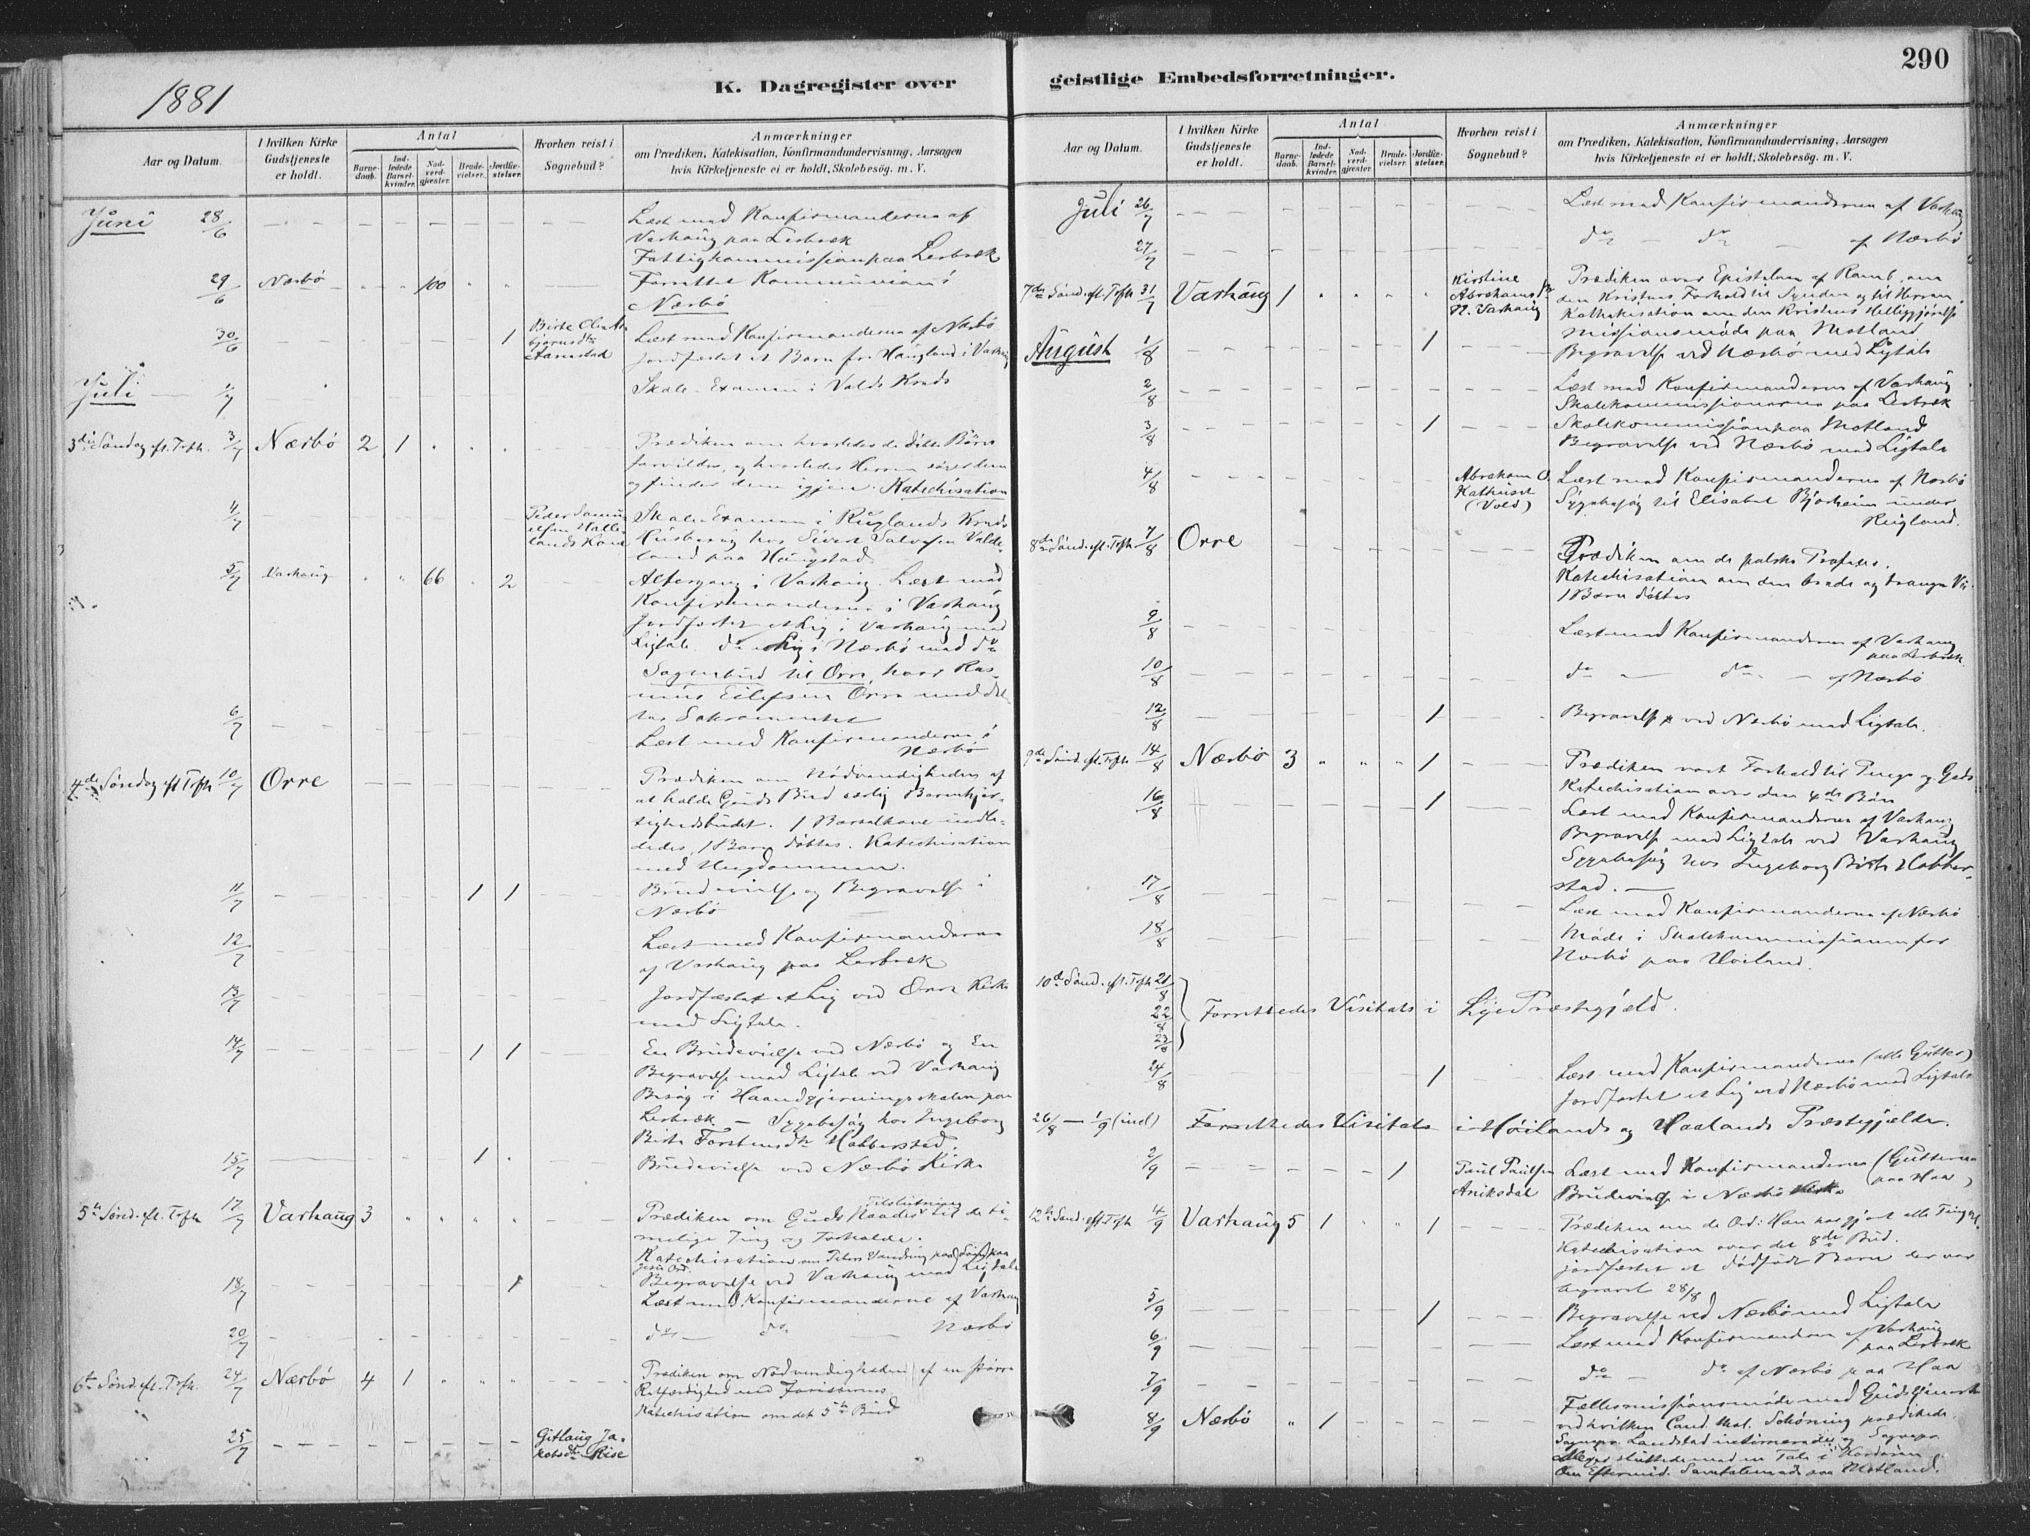 290
1881
K. Dagregister over
geistlige Embedsforretninger.
Aar og Datum.
I hvilken Kirke
Gudstjeneste
er holdt.
Antal
Barne-
daab.
Ind-
ledede
Barsel-
kvinder.
Nad-
verd-
gjæster.
Brude-
vielser.
Jordfæ-
stelser.
Hvorhen reist i
Sognebud?
Anmærkninger
om Prædiken, Katekisation, Konfirmandundervisning, Aarsagen
hvis Kirketjeneste ei er holdt, Skolebesøg. m. V.
Juni 28/6 Læst med Konfirmanderne af
Varhaug paa Lerbræk
Fattigkommission paa Lerbræk
29/6 Nærbø 100 Forrettet Kommunion i
Nærbø
30/6 1 Læst med Konfirmanderne af Nærbø
jordfæstet et Barn fra Haugland i Varhaug
Juli 1/7 Skole-Examen i Volds Kreds
3die Søndag eft. Trefh. 3/7 Nærbø 2 1 Prædiken om hvorledes de døbte Børn
forvildes, og hvorledes Herren søger dem
og finder dem igjen. Katechisation
4/7 Skole-Examen i Ruglands Kreds
Husbesøg hos Sivert Salvesen
paa Haugstad
5/7 Varhaug 66 2 Altergang i Varhaug. Læst med
Konfirmanderne i Varhaug
Jordfæstet et Lig i Varhaug med
Ligtale. do et Lig i Nærbø med do
Sognebud til Orre, hvor Ras-
mus Eilefsen Orre
Sakramentet
6/7 Læst med Konfirmanderne i
Nærbø
4de Søndag eft Trefh 10/7 Orre Prædiken om Nødvendigheden af
at holde Guds Bud særlig Barmhjer-
tighedsbudet. 1 Barselkone indle-
dedes, 1 Barn døbtes. Katechisation
med Ungdommen.
11/7 1 1 Brudevielse og Begravelse i
Nærbø
12/7 Læst med Konfirmanderne
af Varhaug paa Lerbræk
13/7 Jordfæstet et Lig ved Orre Kirke
med Ligtale.
14/7 1 1 En Brudevielse ved Nærbø og En
Begravelse med Ligtale ved Varhaug
Besøg i Haandgjerningsskolen paa
Lerbræk — Sygebesøg hos Ingeborg
Birte Torstensdtr Habberstad.
15/7 1 Brudevielse ved Nærbø Kirke
5te Sønd. eft. Trefh 17/7 Varhaug 3 Prædiken om Guds Naades Tilslutning til de ti-
melige Ting og Forholde.
Katechisation om Peters Vandring paa Søen paa
Jesu Ord.
18/7 1 Begravelse ved Varhaug med Ligtale
Læst med Konfirmanderne af Varhaug
20/7 do — do Nærbø
6te Sønd. eft. Trefh. 24/7 Nærbø 4 1 Prædiken om Nødvendigheden af en større
Retfærdighed end Farisæernes
Katechisation om det 5te Bud
25/7 Gitlaug Ja-
kobsdtr Rise
Aar og Datum.
I hvilken Kirke
Gudstjeneste
er holdt.
Antal
Barne-
daab.
Ind-
ledede
Barsel-
kvinder.
Nad-
verd-
gjæster.
Brude-
vielser.
Jordfæ-
stelser.
Hvorhen reist i
Sognebud?
Anmærkninger
om Prædiken, Katekisation, Konfirmandundervisning, Aarsagen
hvis Kirketjeneste ei er holdt, Skolebesøg. m. V.
Juli 26/7 Læst med Konfirmanderne af Varhaug
27/7 do — do — af Nærbø
7de Sønd. eft. Trefh 31/7 Varhaug 1 Kirstine
Abrahamsdtr
N. Varhaug
Prædiken over Epistelen af Romb. om
den Kristnes Forhold til Synden og til Herren.
Kathekisation om den Kristnes Helliggjørelse
Missionsmøde paa Motland
August 1/8 1 Begravelse ved Nærbø med Ligtale
2/8 Læst med Konfirmanderne af Varhaug
Skolekommissionerne paa Lerbræk
3/8 1 Skolekommission paa Motland
Begravelse ved Nærbø med Ligtale
4/8 Abraham O.
(Vold)
Læst med Konfirmanderne af Nærbø
Sygebesøg til Elisabet Bjorheim under
Rugland.
8de Sønd. eft. Trefh 7/8 Orre Prædiken om de falske Profeter.
Katechisation om den brede og trange Vei
1 Barn døbtes
9/8 Læst med Konfirmanderne af Varhaug
paa Lerbræk.
10/8 do — do — af Nærbø
12/8 1 Begravelse ved Nærbø med Ligtale.
9de Sønd. eft. Trefh 14/8 Nærbø 3 1 Prædiken vort Forhold til Penge og Gods
Katechisation over den 4de Bøn
16/8 1 Læst med Konfirmanderne af Varhaug
Begravelse med Ligtale ved Varhaug
Sygebesøg hos Ingeborg Birte Habber-
stad. —
17/8 Læst med Konfirmanderne af Nærbø
18/8 Møde i Skolekommissionen for
Nærbø paa Høiland.
10de Sønd. eft. Trefh 21/8
22/8
23/8
Forrettedes Visitats i Lye Præstegjæld.
24/8 1 Læst med Konfirmanderne (alle Gutter)
Jordfæstet et Lig ved Nærbø med Ligtale
26/8 — 1/9 (incl) Forrettedes Visitats i Høilands og Haalands Præstegjælde.
2/9 1 Paul Paulsen
Aniksdal
Læst med Konfirmanderne (Gutterne
paa Haa)
Brudevielse i Nærbø Kirke
12te Sønd. eft Trefh 4/9 Varhaug 5 1 1 Prædiken om de Ord: Han har gjort alle Ting vel.
Katechisation over det 8de Bud.
jordfæstet et dødfødt Barn der var
begravet 28/8
5/9 1 Begravelse ved Nærbø med Ligtale
6/9 Læst med Konfirmanderne af Varhaug
paa Lerbræk
7/9 do — do af Nærbø paa Haa
8/9 Nærbø 1 Fællesmissionsmøde med Gudstjeneste
ved hvilken Cand. theol. Schøning prædikede.
Sognepr. Landstad intimerede og Sognepr.
sluttede med en Tale i Kordøren
Om Eftermid. Samtalemøde paa Motland.